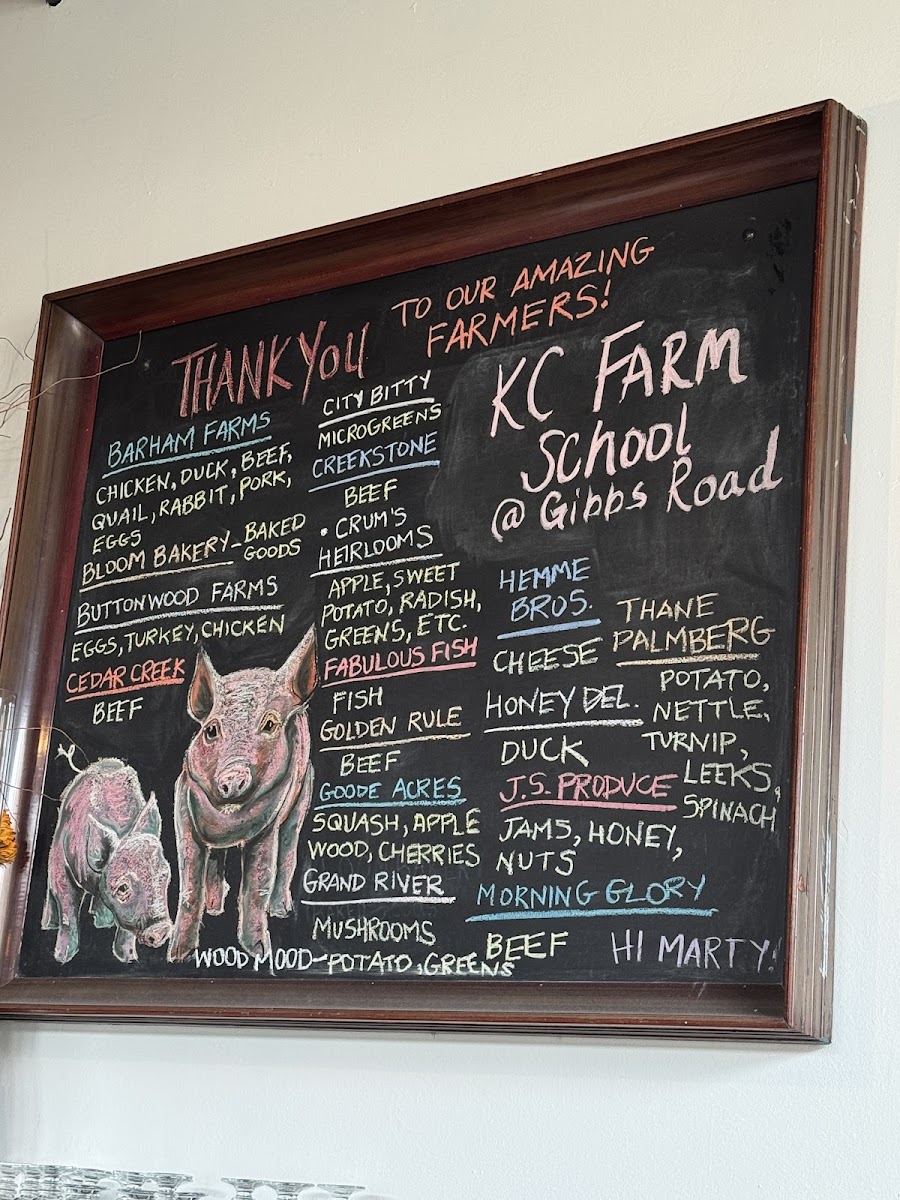 THANK YOU
TO OUR AMAZING
FARMERS!
BARHAM FARMS
CHICKEN, DUCK, BEEF,
QUAIL, RABBIT, PORK,
EGGS
BLOOM BAKERY - BAKED
GOODS
BUTTONWOOD FARMS
EGGS, TURKEY, CHICKEN
CEDAR CREEK
BEEF
CITY BITTY
MICROGREENS
CREEKSTONE
BEEF
• CRUM'S
HEIRLOOMS
APPLE, SWEET
POTATO, RADISH,
GREENS, ETC.
FABULOUS FISH
FISH
GOLDEN RULE
BEEF
GOODE ACRES
SQUASH, APPLE
WOOD, CHERRIES
GRAND RIVER
MUSHROOMS
WOOD MOOD - POTATO, GREENS
KC FARM
SCHOOL
@ Gibbs Road
HEMME
BROS.
CHEESE
HONEY DEL.
DUCK
J.S. PRODUCE
JAMS, HONEY,
NUTS
MORNING GLORY
BEEF
THANE
PALMBERG
POTATO,
NETTLE,
TURNIP,
LEEKS,
SPINACH
HI MARTY!